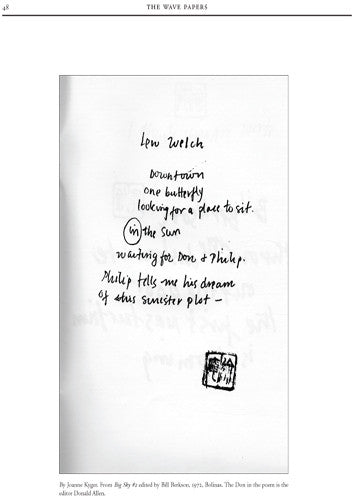 48
THE WAVE PAPERS
Lew Welch
Downtown
one butterfly
looking for a place to sit.
in the sun
waiting for Don & Philip.
Philip tells me his dream
of this sinister plot —
By Joanne Kyger. From Big Sky #2 edited by Bill Berkson, 1972, Bolinas. The Don in the poem is the
editor Donald Allen.